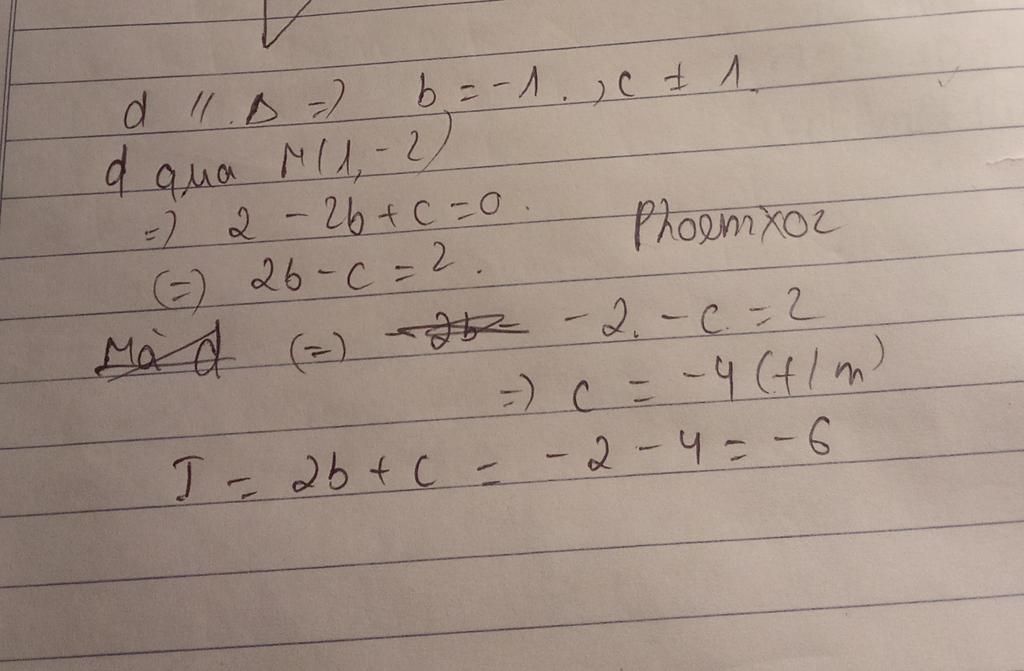 d // Δ => b = -1. , c ≠ 1.
d qua M(1, -2)
=> 2 - 2b + c = 0.
PhoemXoz
(=) 2b - c = 2.
Mà d (=) -2b- -2. - c = 2
=> c = -4 (t/m)
T = 2b + c = -2 - 4 = -6